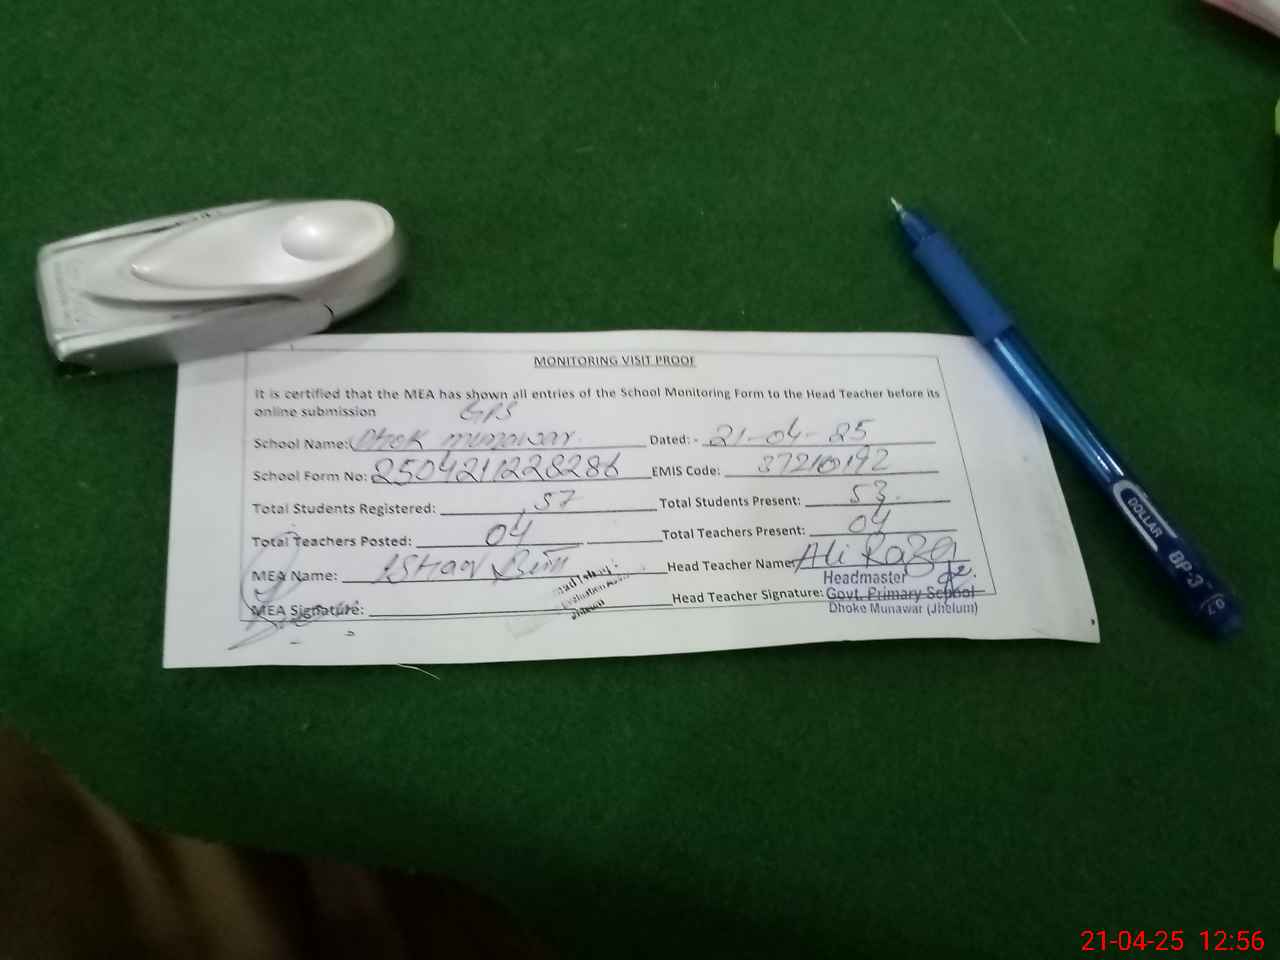 MONITORING VISIT PROOF
It is certified that the MEA has shown all entries of the School Monitoring Form to the Head Teacher before its
online submission
GPS
School Name: Dhok munawar. Dated: - 21-04-25
School Form No: 2504211228286 EMIS Code: 37210192
Total Students Registered: 57 Total Students Present: 53.
Total Teachers Posted: 04 Total Teachers Present: 04
MEA Name: Head Teacher Name: Ali Raza
Headmaster
MEA Signature: Head Teacher Signature: Govt. Primary School
Dhoke Munawar (Jhelum)
DOLLAR BP-3 0.7
21-04-25 12:56